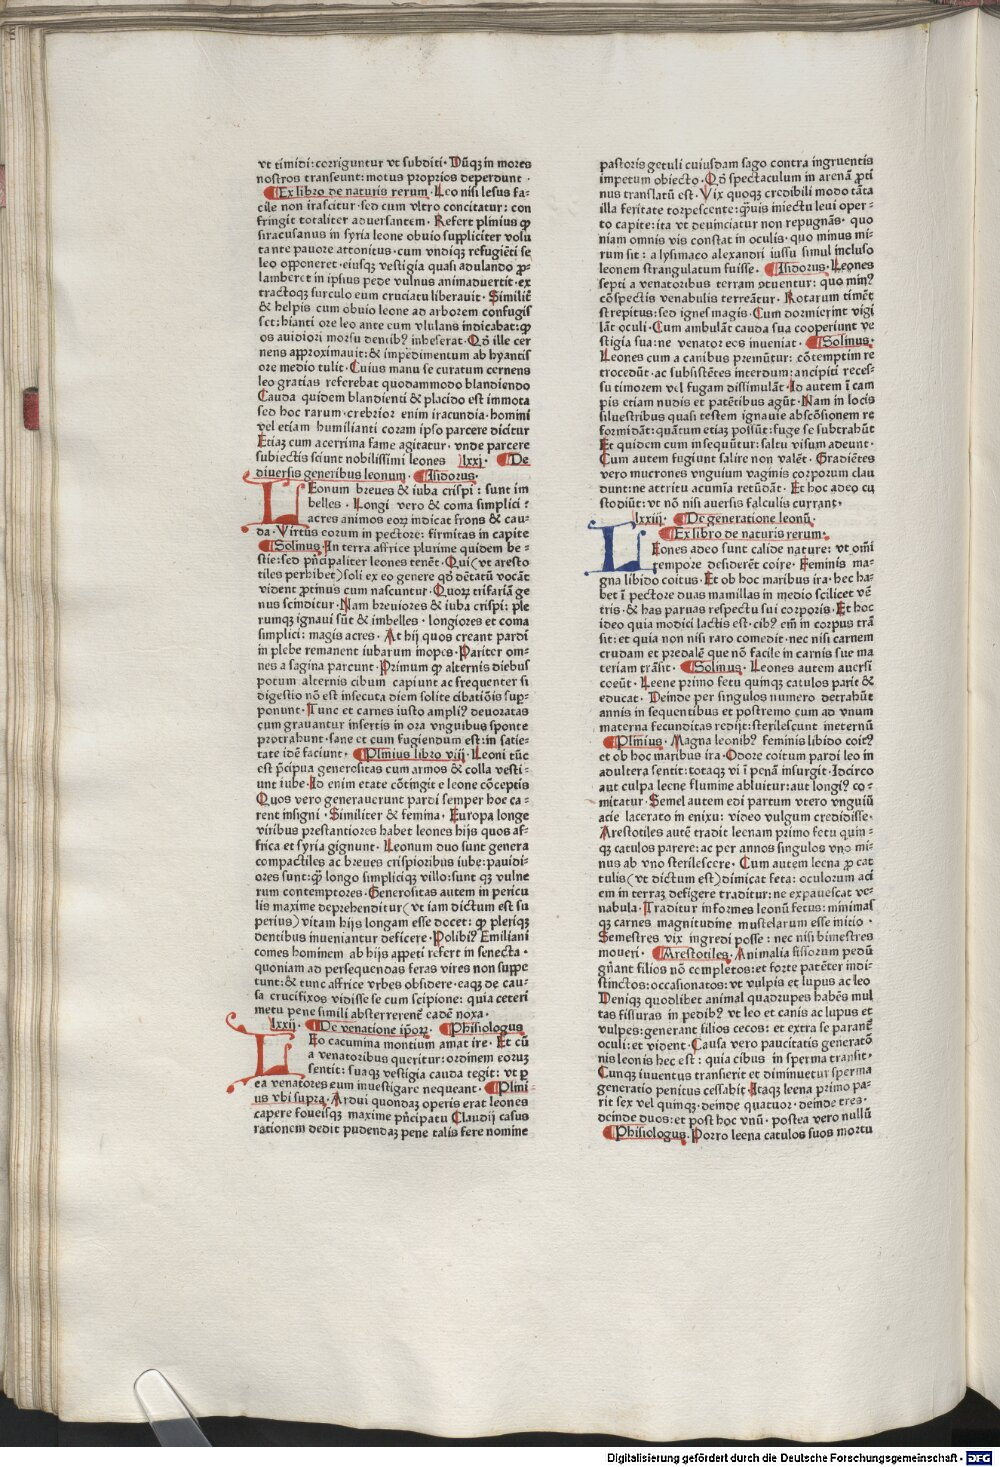 vt timidi: corriguntur vt subditi· Dūqꝫ in mores
nostros transeunt: motus proprios deperdunt ·
¶Ex libro de naturis rerum· Leo nisi lesus fa⸗
cile non irascitur·sed cum vltro concitatur: con
fringit totaliter aduersantem· Refert plinius ꝙ
siracusanus in syria leone obuio suppliciter volu
tante pauore attonitus·cum vndiqꝫ refugiēti se
leo opponeret·eiusqꝫ vestigia quasi adulando ꝓ⸗
lamberet in ipsius pede vulnus animaduertit·ex
tractoqꝫ surculo eum cruciatu liberauit· Similiē
& helpis cum obuio leone ad arborem confugis
set: hianti ore leo ante eum vlulans indicabat: ꝙ
os auidiori morsu dentibꝰ inheserat· Qđ ille cer
nens approximauit: & impedimentum ab hyantis
ore medio tulit· Cuius manu se curatum cernens
leo gratias referebat quodammodo blandiendo
Cauda quidem blandienti & placido est immota
sed hoc rarum·crebrior enim iracundia·homini
vel etiam humilianti coram ipso parcere dicitur
Etiaꝫ cum acerrima fame agitatur· vnde parcere
subiectis sciunt nobilissimi leones lxxi· ¶De
diuersis generibus leonum· ¶Isidorus·
LEonum breues & iuba crispi: sunt im
belles· Longi vero & coma simplici:
acres animos eoꝝ indicat frons & cau⸗
da· Virtus eorum in pectore: firmitas in capite
¶Solinus· In terra affrice plurime quidem be⸗
stie: sed pn̄cipaliter leones tenēt· Qui (vt aresto
tiles perhibet) soli ex eo genere qđ dētatū vocāt
vident ꝓtinus cum nascuntur· Quoꝝ trifariā ge
nus scinditur· Nam breuiores & iuba crispi: ple
rumqꝫ ignaui sūt & imbelles· longiores et coma
simplici: magis acres· At hij quos creant pardi
in plebe remanent iubarum inopes· Pariter om⸗
nes a sagina parcunt· Primum ꝙ alternis diebus
potum alternis cibum capiunt ac frequenter si
digestio nō est insecuta diem solite cibatiōis sup⸗
ponunt· Tunc et carnes iusto ampliꝰ deuoratas
cum grauantur insertis in ora vnguibus sponte
protrahunt·sane et cum fugiendum est: in satie⸗
tate idē faciunt· ¶Plinius libro viij· Leoni tūc
est p̄cipua generositas cum armos & colla vesti⸗
unt iube· Id enim etate cōtingit e leone cōceptis
Quos vero generauerunt pardi semper hoc ca⸗
rent insigni· Similiter & femina· Europa longe
viribus prestantiores habet leones hijs quos af⸗
frica et syria gignunt· Leonum duo sunt genera
compactiles ac breues crispioribus iube: pauidi⸗
ores sunt: ꝙ̄ longo simpliciqꝫ villo: sunt qꝫ vulne
rum contemptores· Generositas autem in pericu
lis maxime deprehenditur (vt iam dictum est su
perius) vitam hijs longam esse docet: ꝙ pleriqꝫ
dentibus inueniantur deficere· Polibiꝰ Emiliani
comes hominem ab hijs appeti refert in senecta·
quoniam ad persequendas feras vires non suppe
tunt: & tunc affrice vrbes obsidere·eaqꝫ de cau⸗
sa crucifixos vidisse se cum scipione: quia ceteri
metu pene simili absterrerent̄ eadē noxa·
lxxij· ¶De venatione ip̄oꝝ· ¶Phisiologus
LEo cacumina montium amat ire· Et cū
a venatoribus queritur: ordinem eoruꝫ
sentit: suaqꝫ vestigia cauda tegit: vt p
ea venatores eum inuestigare nequeant· ¶Plini⸗
us vbi supra· Ardui quondaꝫ operis erat leones
capere foueisqꝫ maxime pn̄cipatu Claudij casus
rationem dedit pudendaꝫ pene talis fere nomine
pastoris getuli cuiusdam sago contra ingruentis
impetum obiecto· Qđ spectaculum in arenā ꝓti
nus translatū est· Vix quoqꝫ credibili modo tāta
illa feritate torpescente: ꝙ̄uis iniectu leui oper⸗
to capite: ita vt deuinciatur non repugnās· quo
niam omnis vis constat in oculis·quo minus mi⸗
rum sit: a lysimaco alexandri iussu simul incluso
leonem strangulatum fuisse· ¶Isidorus· Leones
septi a venatoribus terram otuentur: quo minꝰ
cōspectis venabulis terreātur· Rotarum timēt
strepitus: sed ignes magis· Cum dormierint vigi
lāt oculi· Cum ambulāt cauda sua cooperiunt ve
stigia sua: ne venator eos inueniat· ¶Solinus·
Leones cum a canibus premūtur: cōtemptim re
trocedūt·ac subsistētes interdum: ancipiti reces⸗
su timorem vel fugam dissimulāt· Id autem ī cam
pis etiam nudis et patētibus agūt· Nam in locis
siluestribus quasi testem ignauie abscōsionem re
formidāt: quātum etiaꝫ possūt: fuge se subtrahūt
Et quidem cum insequūtur: saltu visum adeunt·
Cum autem fugiunt salire non valēt· Gradiētes
vero mucrones vnguium vaginis corporum clau
dunt: ne attritu acumīa retūdāt· Et hoc adeo cu
stodiūt: vt nō nisi auersis falculis currant·
lxxiij· ¶De generatione leonū·
¶Ex libro de naturis rerum·
LEones adeo sunt calide nature: vt om̄i
tempore desiderēt coire· Feminis ma⸗
gna libido coitus· Et ob hoc maribus ira· hec ha⸗
bet ī pectore duas mamillas in medio scilicet vē
tris·& has paruas respectu sui corporis· Et hoc
ideo quia modici lactis est·cibꝰ em̄ in corpus trā
sit: et quia non nisi raro comedit·nec nisi carnem
crudam et predalē que nō facile in carnis sue ma
teriam trāsit· ¶Solinus· Leones autem auersi
coeūt· Leene primo fetu quinqꝫ catulos parit &
educat· Deinde per singulos numero detrahūt
annis in sequentibus et postremo cum ad vnum
materna fecunditas redijt: sterilescunt ineternū
¶Plinius· Magna leonibꝰ feminis libido coitꝰ
et ob hoc maribus ira· Odore coitum pardi leo in
adultera sentit: totaqꝫ vi ī penā insurgit· Idcirco
aut culpa lecne flumine abluitur: aut longiꝰ co⸗
mitatur· Semel autem edi partum vtero vnguiū
acie lacerato in enixu: video vulgum credidisse·
Arestotiles autē tradit leenam primo fetu quin⸗
qꝫ catulos parere: ac per annos singulos vno mi⸗
nus ab vno sterilescere· Cum autem leena ꝓ cat
tulis (vt dictum est) dimicat feta: oculorum aci
em in terraꝫ defigere traditur: ne expauescat ve⸗
nabula· Traditur informes leonū fetus: minimas
qꝫ carnes magnitudine mustelarum esse inicio·
Semestres vix ingredi posse: nec nisi bimestres
moueri· ¶Arestotiles· Animalia fissorum pedū
gn̄ant filios nō completos: et forte patēter indi⸗
stinctos: occasionatos: vt vulpis et lupus ac leo
Deniqꝫ quodlibet animal quadrupes habēs mul
tas fissuras in pedibꝰ vt leo et canis ac lupus et
vulpes: generant filios cecos: et extra se parant̄
oculi: et vident· Causa vero paucitatis generatō
nis leonis hec est: quia cibus in sperma transit·
Cunqꝫ iuuentus transierit et diminuetur sperma
generatio penitus cessabit· Itaqꝫ leena primo pa⸗
rit sex vel quinqꝫ·deinde quatuor·deinde tres·
deinde duos: et post hoc vnū· postea vero nullū
¶Phisiologus· Porro leena catulos suos mortu
Digitalisierung gefördert durch die Deutsche Forschungsgemeinschaft · DFG